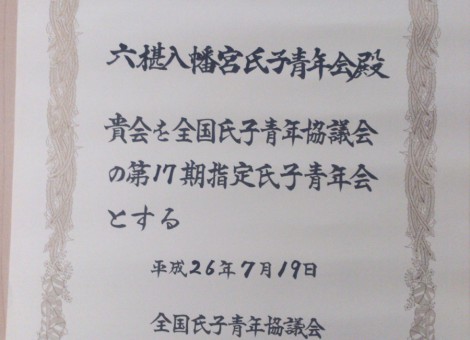 六椹八幡宮氏子青年会殿
貴会を全国氏子青年協議会
の第17期指定氏子青年会
とする
平成26年7月19日
全国氏子青年協議会